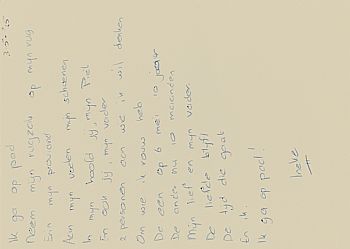 3.5.'25
Ik ga op pad
Neem mijn rugzak op mijn rug
Erin mijn proviand
Aan mijn voeten mijn schoenen
In mijn hoofd jij, mijn Piet
En ook jij, mijn vader
2 personen aan wie ik wil denken
Om wie ik rouw heb
De een op 6 mei 10 jaar
De ander nu 10 maanden
Mijn lief en mijn vader
De liefde blijft
De tijd die gaat
En ik
Ik ga op pad!
Ineke